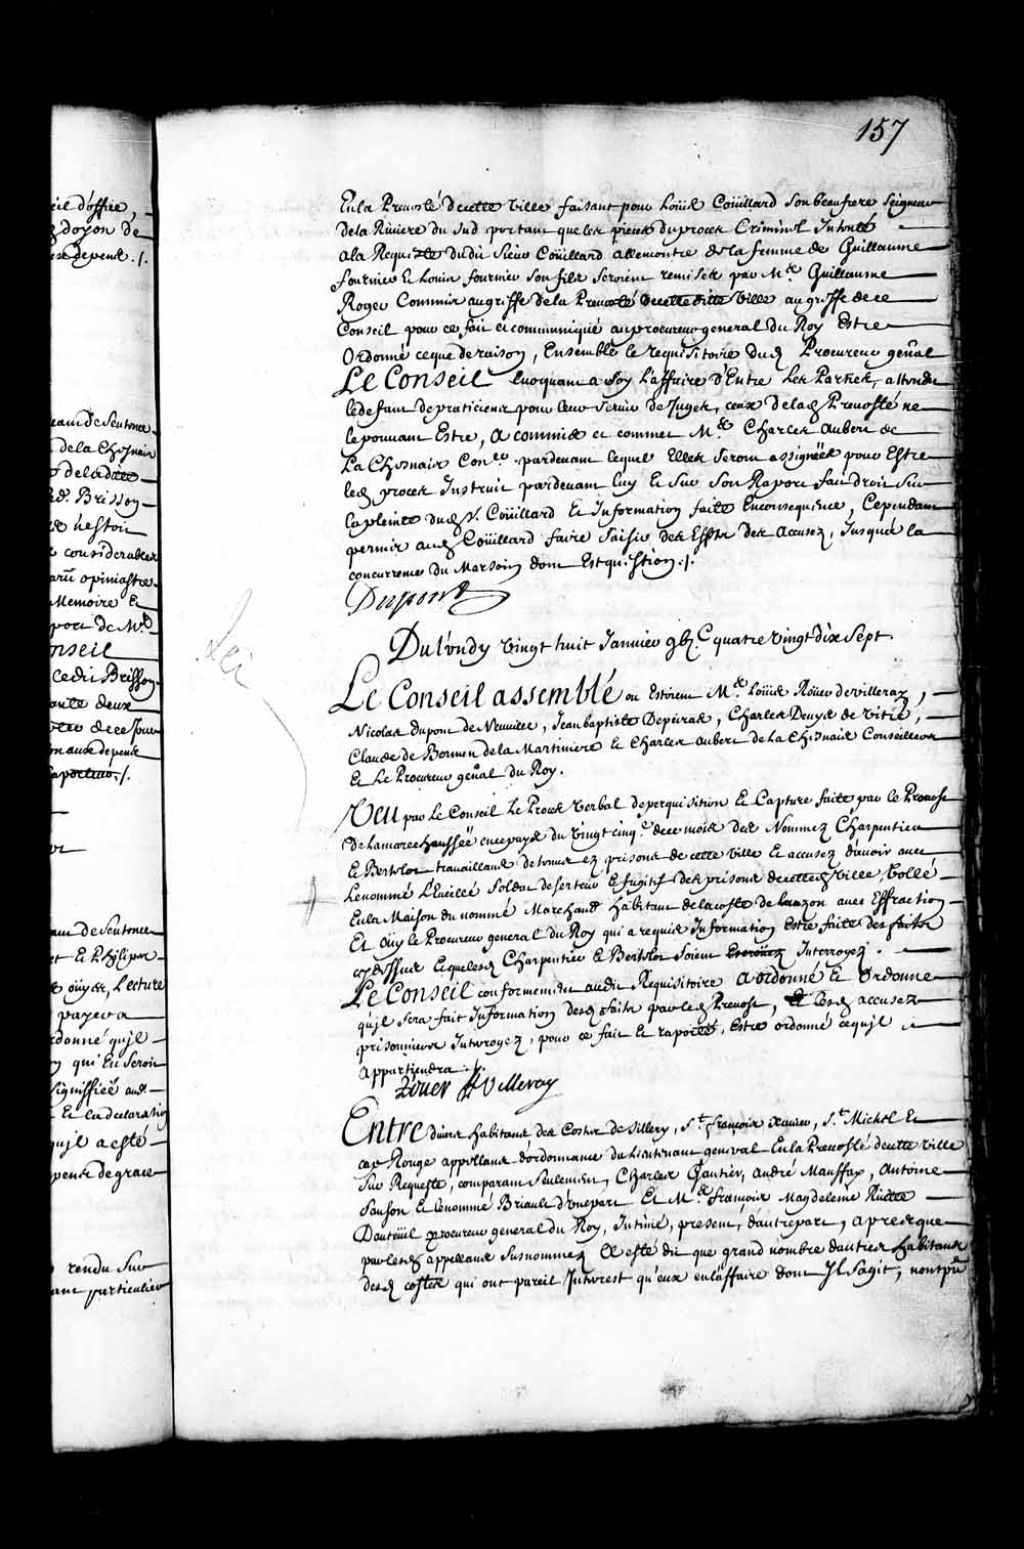 157
eil d'office,
doyon de
se depens ./.
eam de Sentence
de la Chesnaie
de ladite
Brisson
nestoit
considerables
opiniastre
Memoire Et
port de Mr.
nseil
Cedit Brisson
deux
aux depens
am de Sentence
et Et Philipes
ouyes, Lecture
payera
rdonné quil
qui En seroit
Signiffiée aud.
Et la declaration
quil a esté
pens de grace
rendu Sur
particulier
En la Prevosté de cette Ville faisant pour Loüis Coüillard Son beaufrere Seigneur
de la Riviere du Sud portant que les pieces du procez Criminel Intenté
a la Requeste dudit Sieur Coüillard allencontre de la femme de Guillaume
fournier Et Louis fournier Son fils Seroient remises par Me. Guillaume
Roger Commis au greffe de la Prevosté de cette ditte Ville au greffe de ce
Conseil pour ce fait et communiqué au procureur general du Roy Estre
Ordonné ce que de raison, Ensemble le requisitoire dud. Procureur gen̄al
Le Conseil Evoquant a Soy L'affaire d'Entre Les Parties, attendu
le deffaut de praticiens pour leur Servir de Juges, ceux de lad. Prevosté ne
le pouvant Estre, a commis et commet Me. Charles Aubert de
La Chesnais Coner. pardevant lequel Elles Seront assignées pour Estre
led. procez Instruit pardevant luy Et Sur Son Raport fait droit Sur
la plainte dud. Sr. Coüillard Et Information faite En consequence, Cependant
permis aud. Coüillard faire Saisir des Effets des Accusez, Jusques a la
concurrence du Marsoin dont Est question ./.
Dupont
Du Lundy Vingt huit Janvier gbjC quatre Vingt dix Sept.
Lei
Le Conseil assemblé ou Estoient Me. Loüis Roüer de villeray,
Nicolas dupont de Neuville, Jean baptiste Depeiras, Charles Denys de Vitré,
Claude de Bermen de la Martiniere Et Charles Aubert de La Chesnais Conseillers
Et Le Procureur gen̄al du Roy.
Veu par Le Conseil Le Procez Verbal de perquisition Et Capture faite par le Prevost
de la mareschaussée en ce pays du Vingt cinq.e de ce mois des Nommez Charpentier
Et Bertelot travaillans detenus ez prisons de cette Ville Et accusez d'avoir avec
Le nommé L'Eveillé Soldat deserteur Et fugitif des prisons de cette d. Ville, Vollé
En la Maison du nommé Marchand habitant de la coste de Lauzon avec Effraction
Et Oüy le Procureur general du Roy qui a requis Information Estre faite des faits
cy dessus Et que lesd. Charpentier Et Bertelot Soient Interrogez.
Le Conseil conformement audit Requisitoire a ordonné Et Ordonne
qu'il Sera fait Information desd. faits par led. Prevost, Et Lesd. accusez
prisonniers Interrogez, pour ce fait Et raporté, Estre ordonné ce qu'il
appartiendra ./.
Roüer de Villeray
Entre divers habitans des Costes de Sillery, St. françois Xavier, St. Michel Et
cap Rouge appellans d'ordonnance du Lieutenant general En la Prevosté de cette Ville
Sur Requeste, comparant Seulement, Charles Gautier, André Mauffay, Antoine
Sanson Et le nommé Briault d'une part Et Me. francois Magdeleine Rüette
Dauteüil procureur general du Roy, Intimé, present, d'autre part, apres que
par lesd. appellans Susnommez Il a esté dit que grand nombre d'autres habitans
desd. costes qui ont pareil Interest qu'eux en l'affaire dont Il Sagit, nont pu